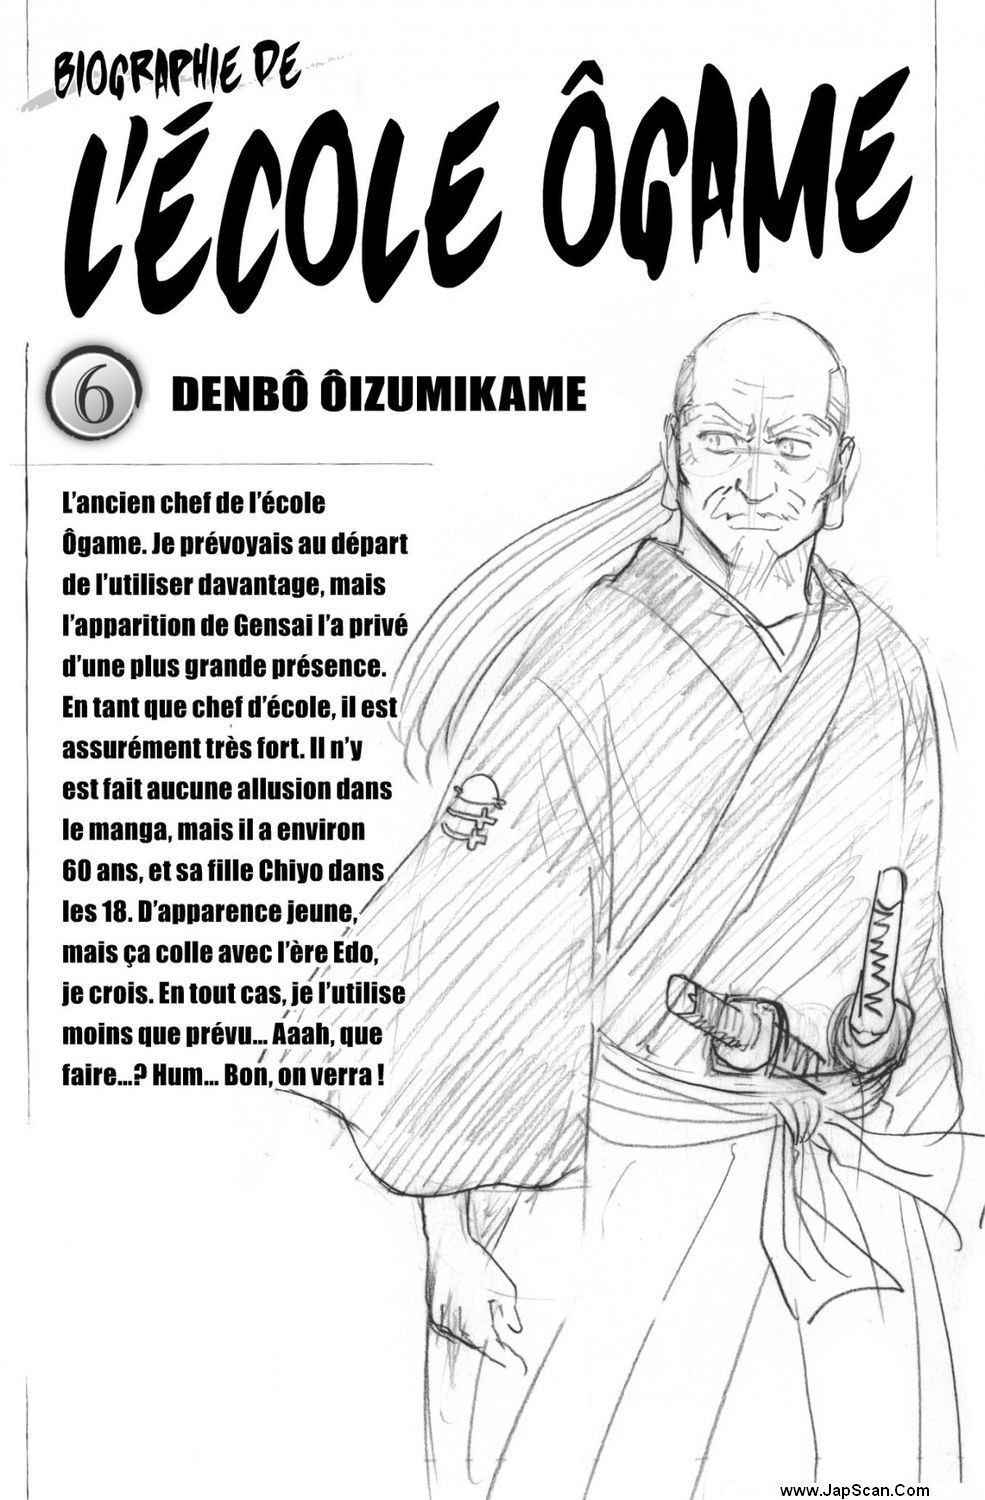 BIOGRAPHIE DE
L'ÉCOLE ÔGAME
6 DENBÔ ÔIZUMIKAME
L'ancien chef de l'école
Ôgame. Je prévoyais au départ
de l'utiliser davantage, mais
l'apparition de Gensai l'a privé
d'une plus grande présence.
En tant que chef d'école, il est
assurément très fort. Il n'y
est fait aucune allusion dans
le manga, mais il a environ
60 ans, et sa fille Chiyo dans
les 18. D'apparence jeune,
mais ça colle avec l'ère Edo,
je crois. En tout cas, je l'utilise
moins que prévu... Aaah, que
faire...? Hum... Bon, on verra !
www.JapScan.Com